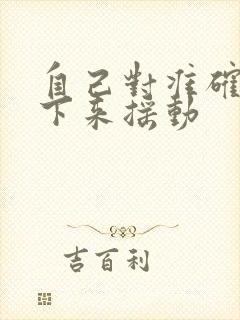 自己對準確
下來摇動
吉百利